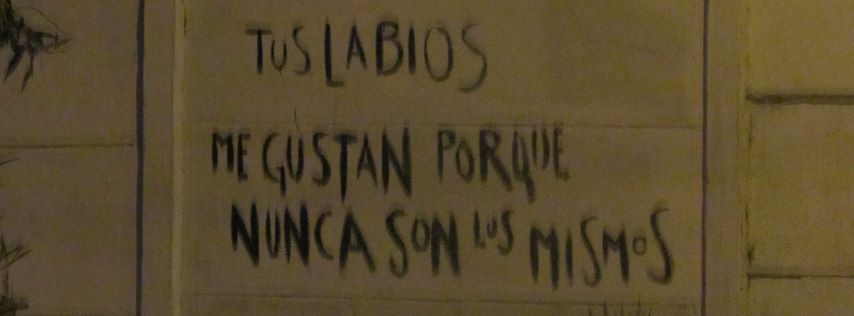 TUS LABIOS
ME GUSTAN PORQUE
NUNCA SON LOS MISMOS